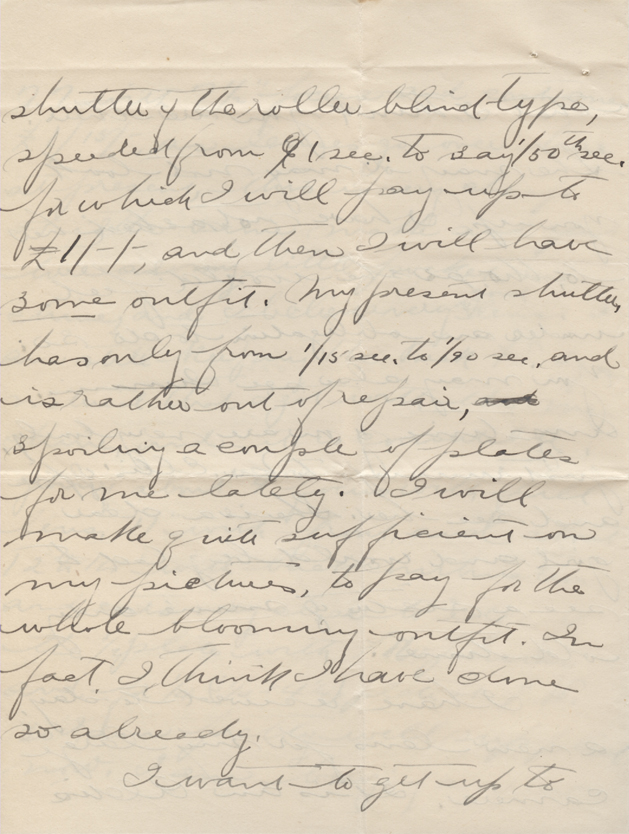 shutter of the roller blind type,
speeded from 1 sec. to say 1/50th sec.
for which I will pay up to
£1/-/-, and then I will have
some outfit. My present shutter
has only from 1/15 sec. to 1/90 sec. and
is rather out of repair, and
spoiling a couple of plates
for me lately. I will
make quite sufficient on
my pictures, to pay for the
whole blooming outfit. In
fact I think I have done
so already.
I want to get up to